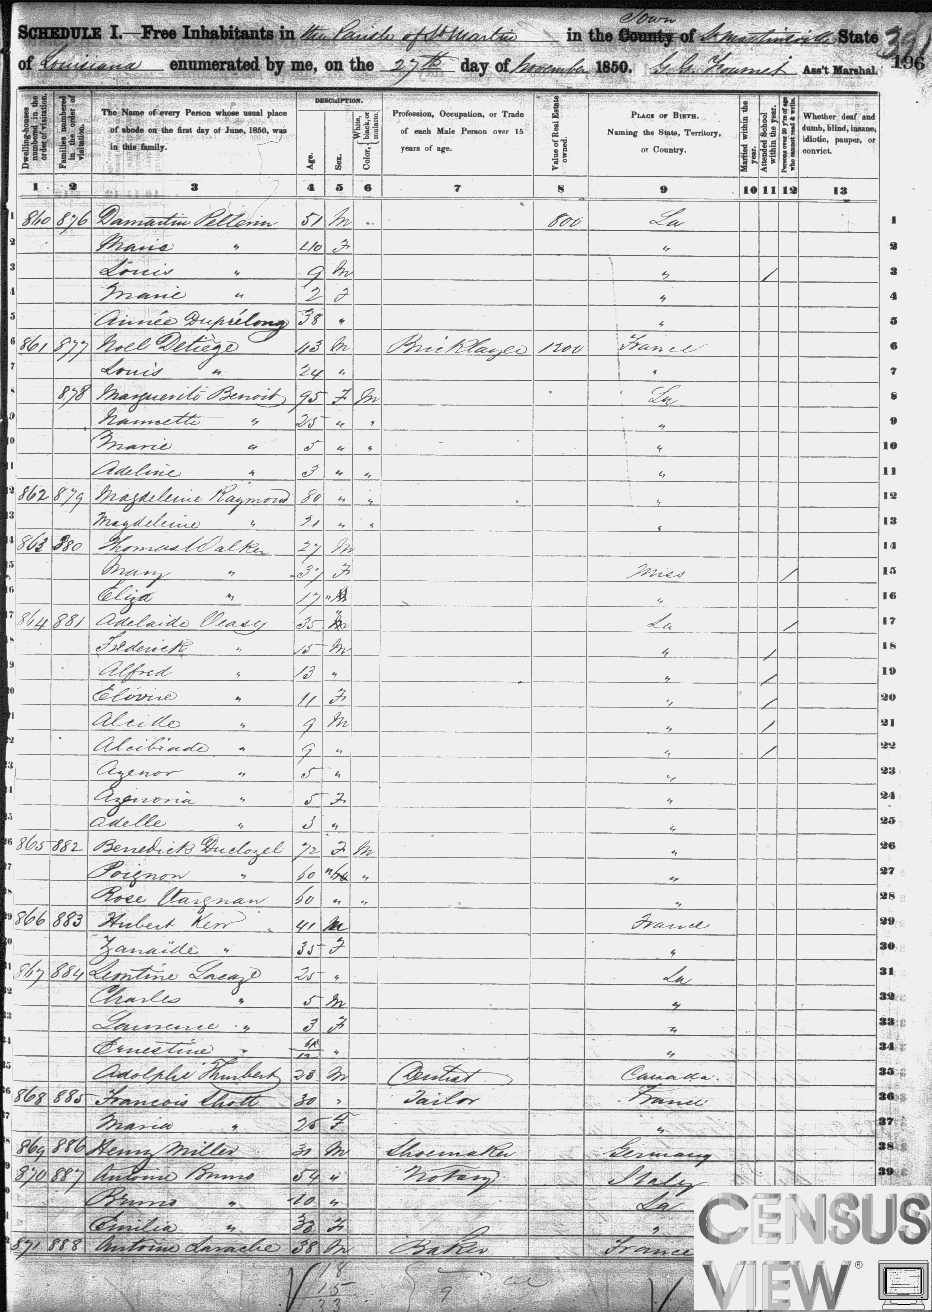 SCHEDULE I.—Free Inhabitants in the Parish of St Martin in the County Town of St Martinsville State 391
of Louisiana enumerated by me, on the 27th day of November 1850. Ass't Marshal. 196
Dwelling-houses numbered in the order of visitation. Families numbered in the order of visitation. The Name of every Person whose usual place of abode on the first day of June, 1850, was in this family. DESCRIPTION. Age. Sex. Color, White, black, or mulatto. Profession, Occupation, or Trade of each Male Person over 15 years of age. Value of Real Estate owned. PLACE OF BIRTH. Naming the State, Territory, or Country. Married within the year. Attended School within the year. Persons over 20 y'rs of age who cannot read & write. Whether deaf and dumb, blind, insane, idiotic, pauper, or convict.
1 2 3 4 5 6 7 8 9 10 11 12 13
1 860 876 Damartin Pellerin 51 M 800 La 1
2 Marie " 40 F " 2
3 Louis " 9 M " / 3
4 Marie " 2 F " 4
5 Aimée Duprélong 38 " " 5
6 861 877 Noel Detiège 43 M Bricklayer 1200 France 6
7 Louis " 24 " " 7
8 878 Marguerite Benoit 95 F M La 8
9 Nanncette " 25 " " " 9
10 Marie " 5 " " " 10
11 Adeline " 3 " " " 11
12 862 879 Magdeleine Raymond 80 " " " 12
13 Magdeleine " 21 " " " 13
14 863 880 Thomas Walker 27 M 14
15 Mary " 37 F Miss / 15
16 Eliza " 17 " " 16
17 864 881 Adelaide Veasy 35 La / 17
18 Frederick " 15 M " / 18
19 Alfred " 13 " " / 19
20 Elivire " 11 F " / 20
21 Alcide " 9 M " / 21
22 Alcibiade " 9 " " / 22
23 Agenor " 5 " " 23
24 " 5 F " 24
25 Adelle " 3 " " 25
26 865 882 Benedick Duclozel 72 F M " 26
27 Poignon " 60 " " 27
28 Rose 60 " " " 28
29 866 883 Hubert Kerr 41 M France 29
30 Zanaïde " 35 F " 30
31 867 884 Leontine Lacaze 25 " La 31
32 Charles " 5 M " 32
33 Laurence " 3 F " 33
34 Ernestine " " " 34
35 Adolphe Humbert 23 M Dentist Canada 35
36 868 885 Francois Shott 30 " Tailor France 36
37 Maria " 25 F " 37
38 869 886 Henry Miller 31 M Shoemaker Germany 38
39 870 887 Antoine Bruno 54 " Notary Italy 39
Bruno " 10 " La
Emilia " 38 F "
871 888 Antoine Larache 38 M Baker France
18
15
33
9
CENSUS
VIEW®